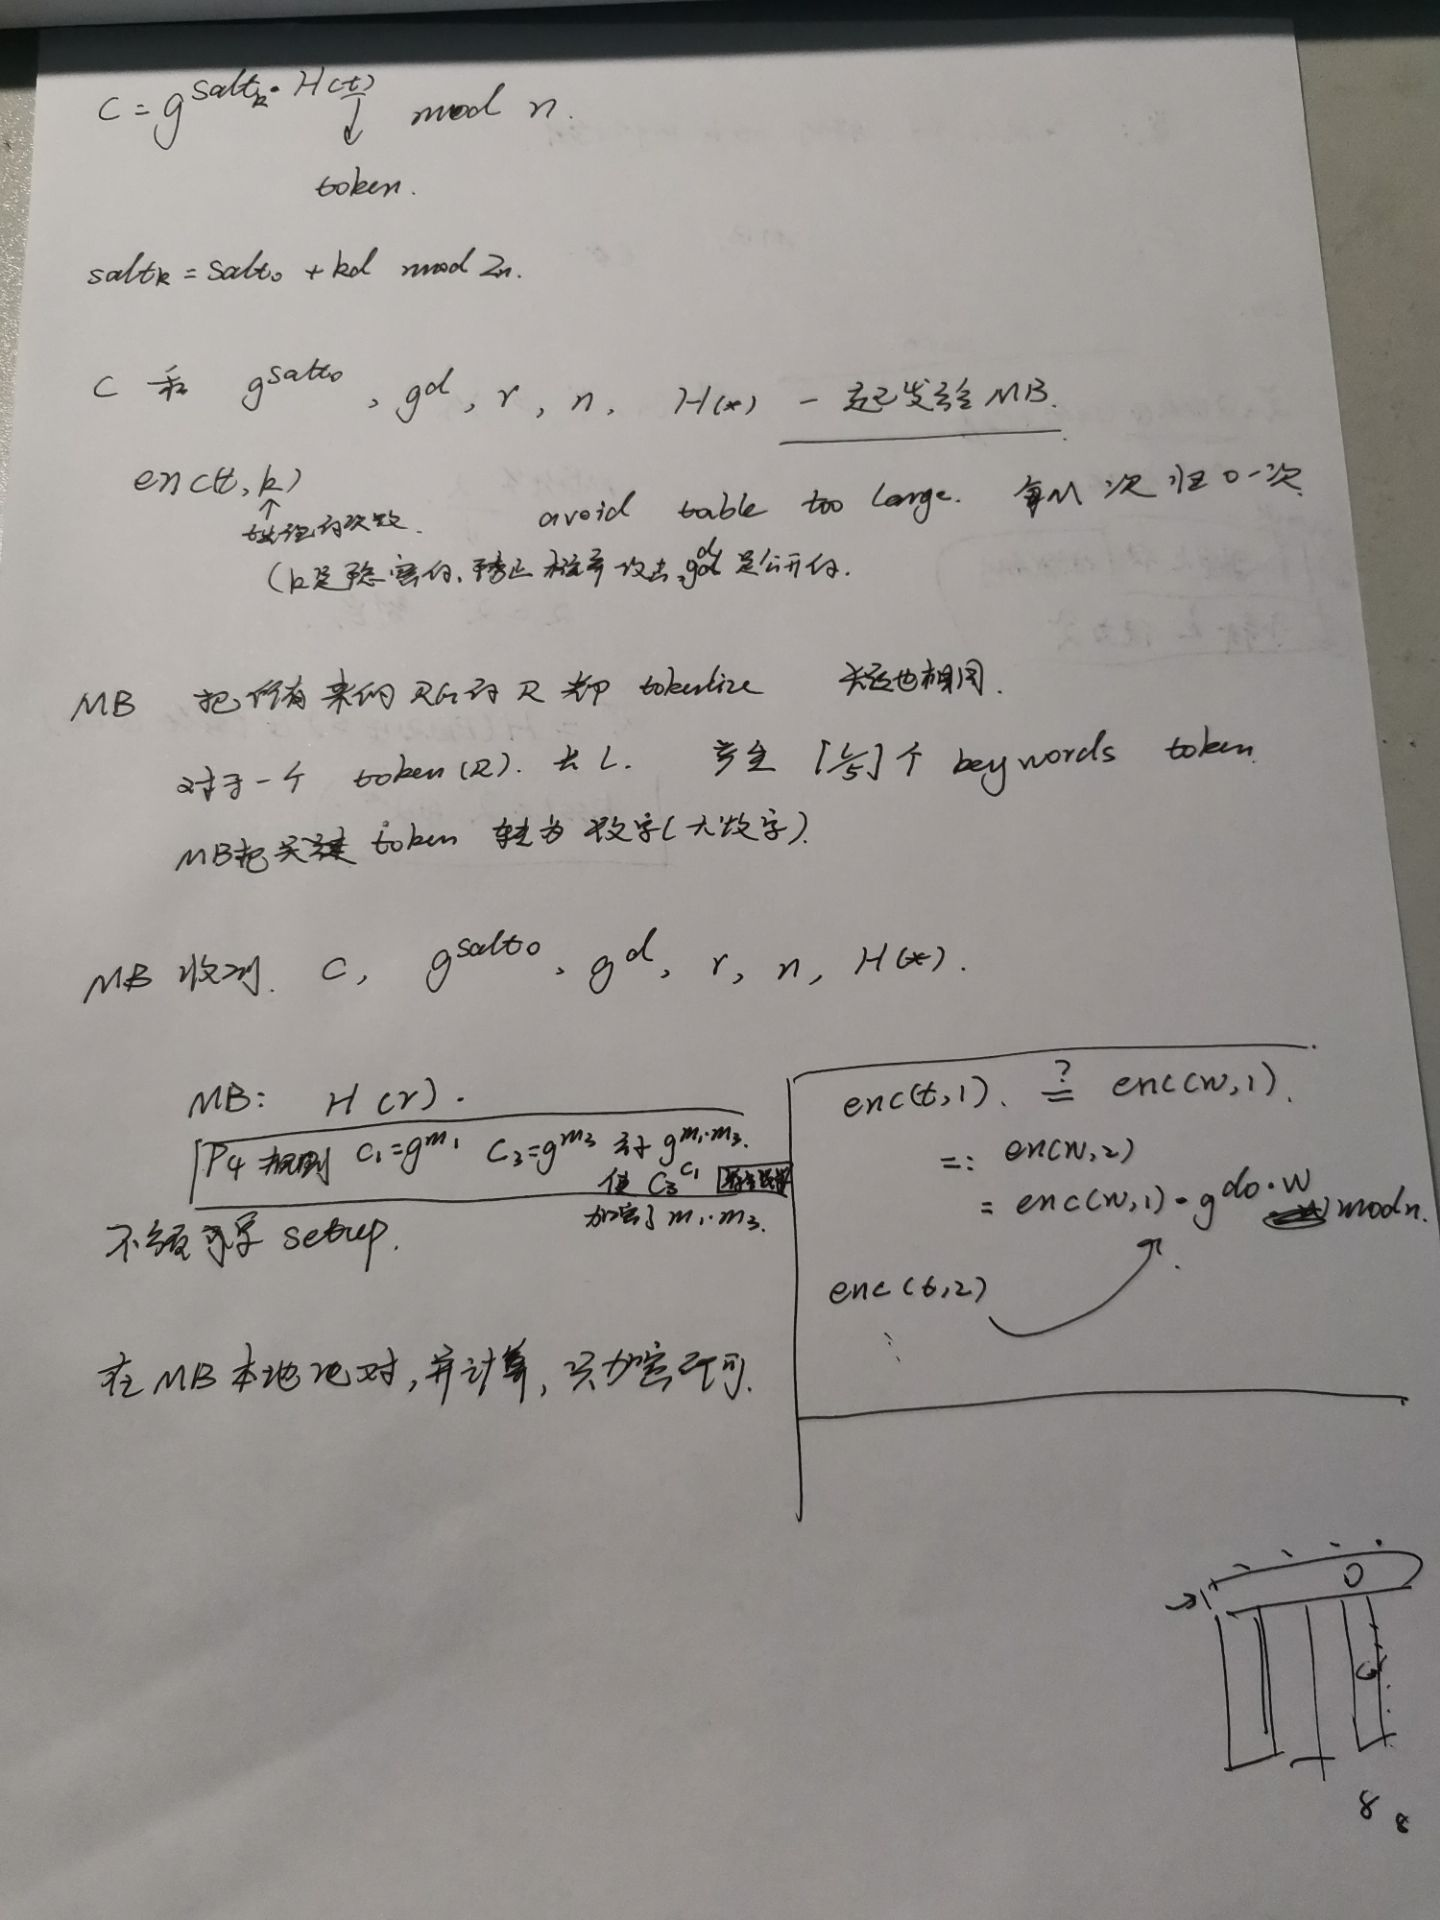 C = g^saltk · H(t) mod n.
token.
saltk = salt0 + kd mod Zn.
C 和 g^salt0 , g^d , r , n , H(*) 一起发给MB.
enc(t, k)
出现的次数. avoid table too large. 每M次归0一次
(k是隐密的, 频率攻击, g^d 是公开的.
MB 把所有来的RG的R都 tokenlize 长短也相同.
对于一个 token (R). 长L. 产生 [L/5] 个 keywords token.
MB把关键 token 转为数字(大数字).
MB 收到. C, g^salt0 , g^d , r, n, H(*).
MB: H(r).
P4 规则 C1=g^m1 C3=g^m3 对 g^m1·m3.
使 C3^C1
加密了 m1·m3.
不须 setup.
在MB本地配对, 并计算, 只加密即可.
enc(t,1). ?= enc(w,1).
=: enc(w,2)
= enc(w,1) · g^d0·w mod n.
enc(t,2)
0
8 8